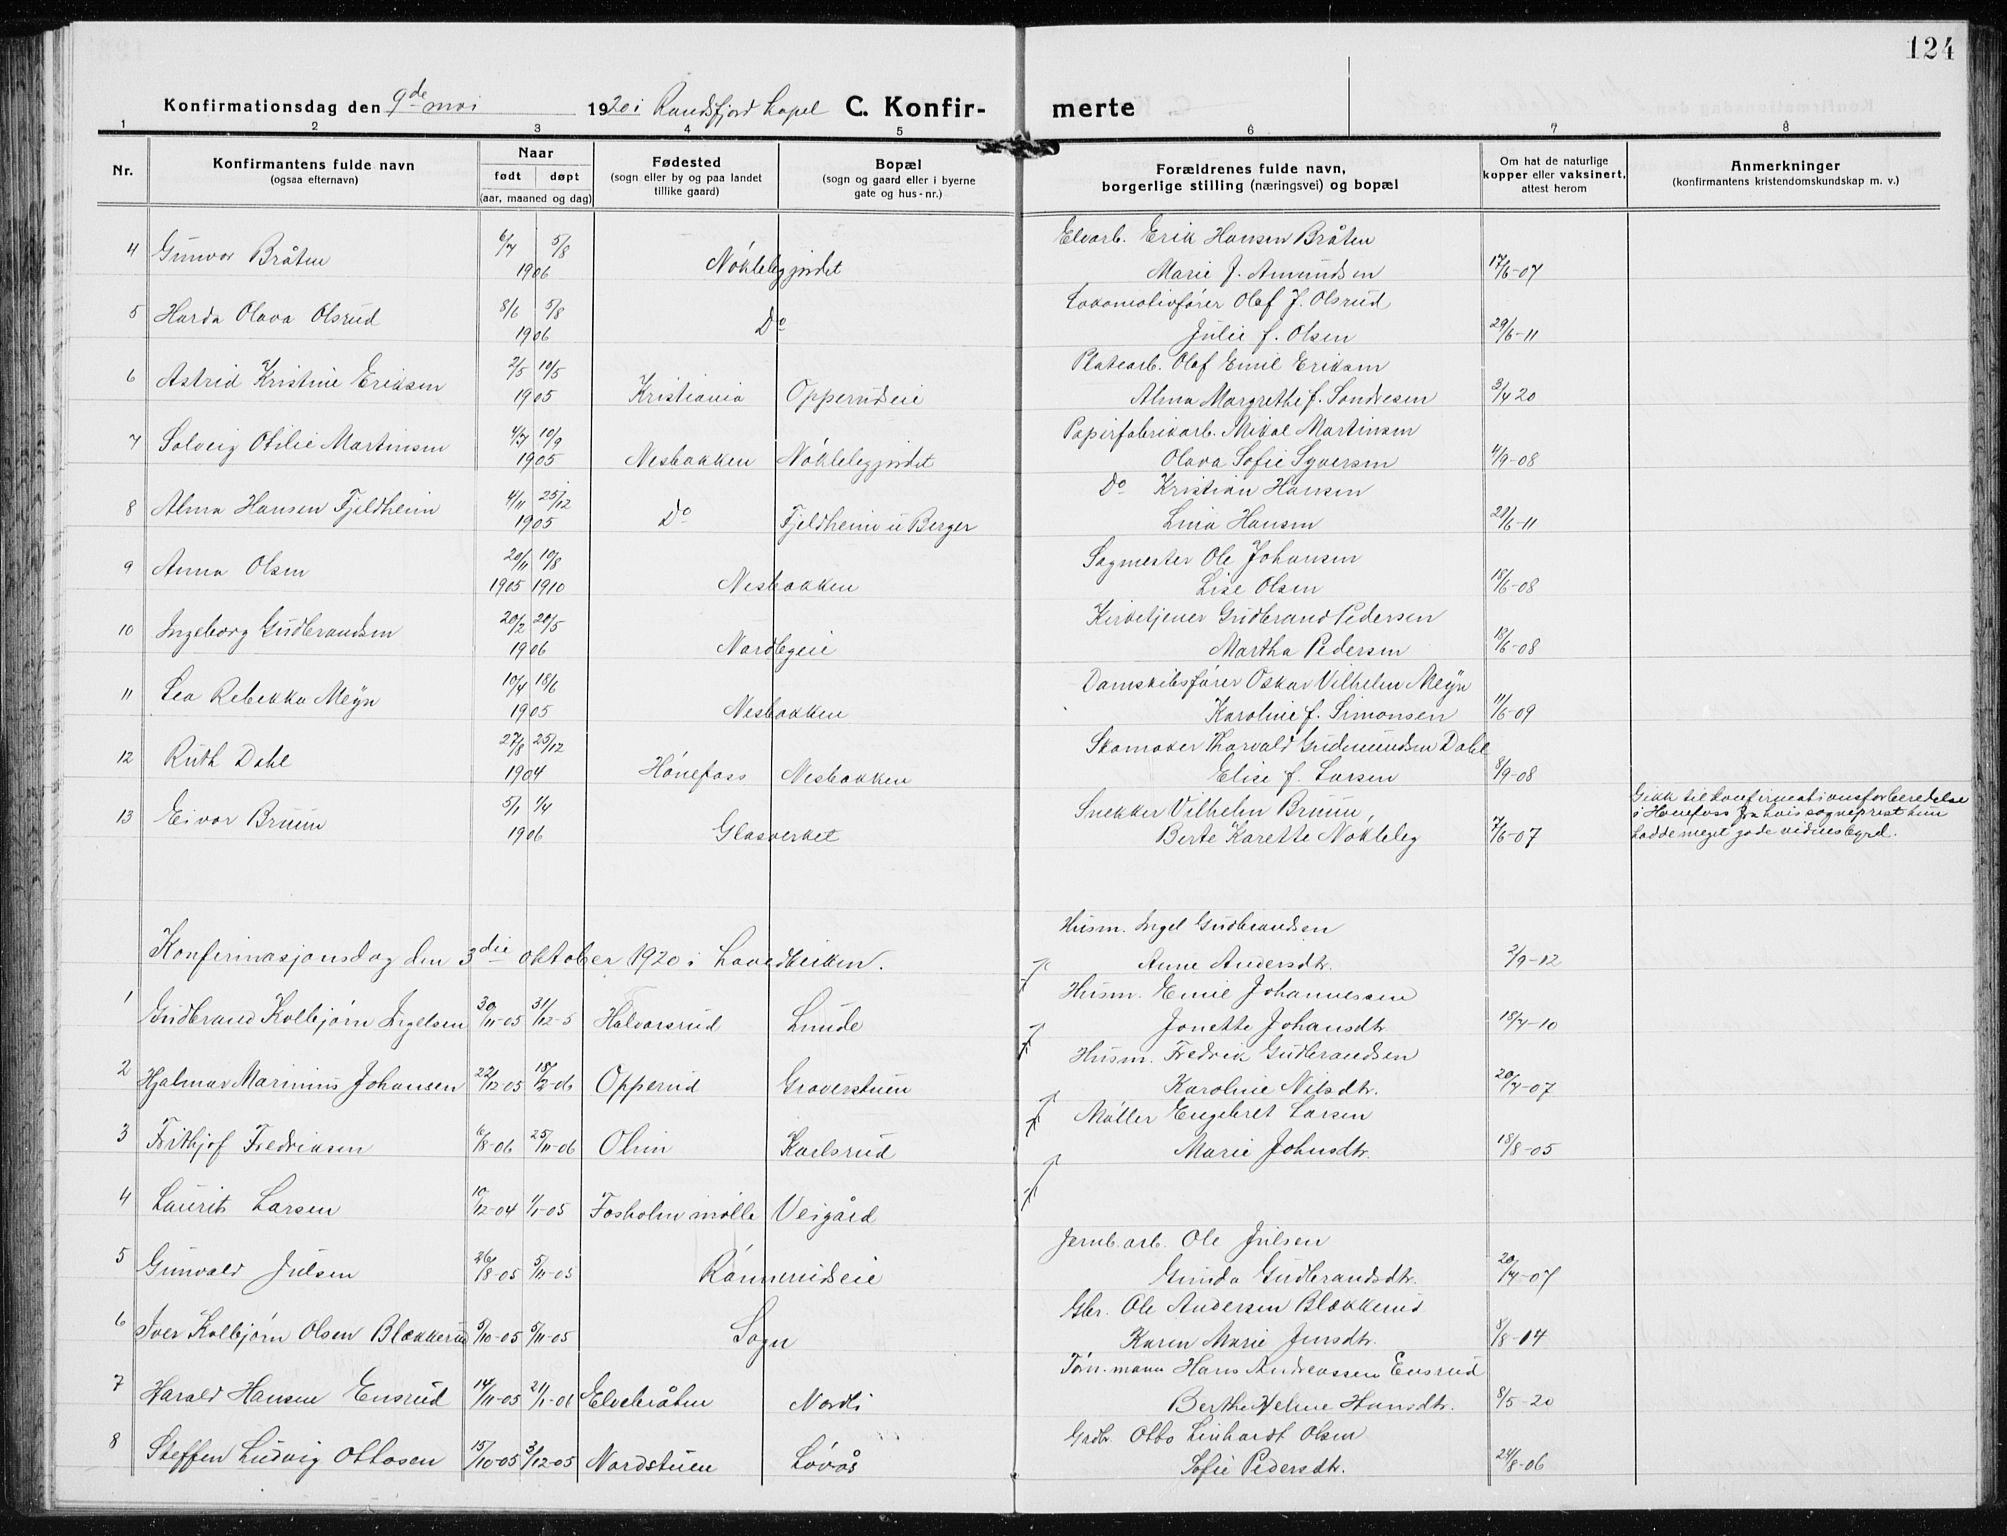 124
Konfirmationsdag den 9de mai 1920 i Randsfjord kapel C. Konfirmerte
1 2 3 4 5 6 7 8
Nr. Konfirmantens fulde navn (ogsaa efternavn) Naar født døpt (aar, maaned og dag) Fødested (sogn eller by og paa landet tillike gaard) Bopæl (sogn og gaard eller i byerne gate og hus-nr.) Forældrenes fulde navn, borgerlige stilling (næringsvei) og bopæl Om hat de naturlige kopper eller vaksinert, attest herom Anmerkninger (konfirmantens kristendomskundskap m. v.)
Elvarb. Erik Hansen Bråten
4 Gunvor Bråten 6/7 5/8 1906 Nøklebygjordet Marie f. Amundsen 17/6-07
Lokomotivfører Olaf J. Olsrud
5 Harda Olava Olsrud 8/6 5/8 1906 Do Julie f. Olsen 29/6-11
Platearb. Olaf Emil Eriksen
6 Astrid Kristine Eriksen 2/5 10/5 1905 Kristiania Opperudseie Alma Margrethe f. Sondresen 3/4 20
Papirfabrikarb. Mikal Martinsen
7 Solveig Otilie Martinsen 4/7 10/9 1905 Nesbakken Nøklebygjordet Olava Sofie Syversen 4/9-08
Do Kristian Hansen
8 Alma Hansen Fjeldheim 4/11 25/12 1905 Do Fjeldheim u Berger Lina Hansen 21/6-11
Sagmester Ole Johansen
9 Anna Olsen 20/11 10/8 1905 1910 Nesbakken Lise Olsen 18/6-08
Kirketjener Gudbrand Pedersen
10 Ingeborg Gudbrandsen 20/2 20/5 1906 Nordbyeie Martha Pedersen 18/6-08
Damskibsfører Oskar Vilhelm Meyn
11 Lea Rebekka Meyn 10/4 18/6 1905 Nesbakken Karoline f. Simonsen 11/6-09
Skomaker Thorvald Gudmundsen Dahl
12 Ruth Dahl 27/8 25/12 1904 Hønefoss Nesbakken Elise f. Larsen 8/9-08
Snekker Vilhelm Bruun,
13 Eivor Bruun 5/1 1/4 1906 Glasverket Berte Karette Nøkleby 7/6-07 Gikk til konfirmationsforberedelse
i Hønefoss fra hvis sogneprest hun
hadde meget gode vidnesbyrd.
Husm. Ingel Gudbrandsen
Konfirmasjonsdag den 3die oktober 1920 i Hovedkirken. Anne Andersdtr. 2/9-12
Husm. Emil Johannessen
1 Gudbrand Kolbjørn Ingelsen 30/11-05 31/12-5 Halvorsrud Lunde Jonette Johansdtr 18/7-10
Husm. Fredrik Gudbrandsen
2 Hjalmar Marinius Johansen 22/12-05 18/2-06 Opperud Graverstuen Karoline Nilsdtr. 20/7-07
Møller Engebret Larsen
3 Frithjof Fredriksen 6/8-06 25/11-06 Olum Karlsrud Marie Johnsdtr. 18/8-05
4 Laurits Larsen 10/12-04 1/1-05 Fosholm mølle Veigård
Jernb.arb. Ole Julsen
5 Gunvald Julsen 26/8-05 5/11-05 Rønnerudseie Gunda Gudbrandsdtr. 20/7-07
Gbr. Ole Andersen Blækkerud
6 Iver Kolbjørn Olsen Blækkerud 5/10-05 5/11-05 Sogn Karen Marie Jensdtr. 8/8-14
Tøm.mann Hans Andreassen Ensrud
7 Harald Hansen Ensrud 14/11-05 21/1-06 Elvebråten Nordli Berthe Helene Hansdtr. 8/5-20
Grdbr. Otto Linhardt Olsen
8 Steffen Ludvig Ottosen 15/10-05 3/12-05 Nordstuen Løvås Sofie Pedersdtr. 24/8-06